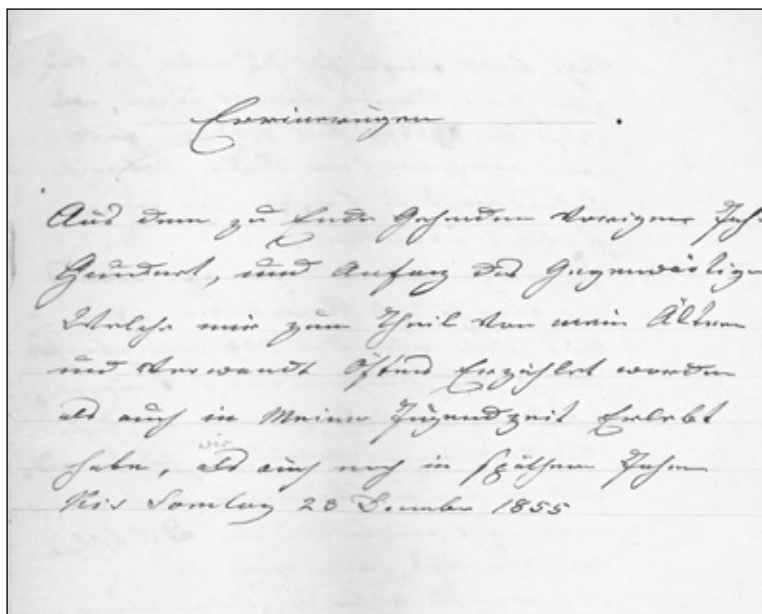 Errinerugen
Aus dem zu Ende Gehenden Vorigene Jah
Hundert, und Anfang des Gegenwärtige
Welche mir zum Theil von mein Ältern
und Verwandt Öfters Erzählet worden
als auch in Meiner Jugendzeit Erlebt
habe, wie als auch noch in späthern Jahren
Bis Sontag 28 December 1855